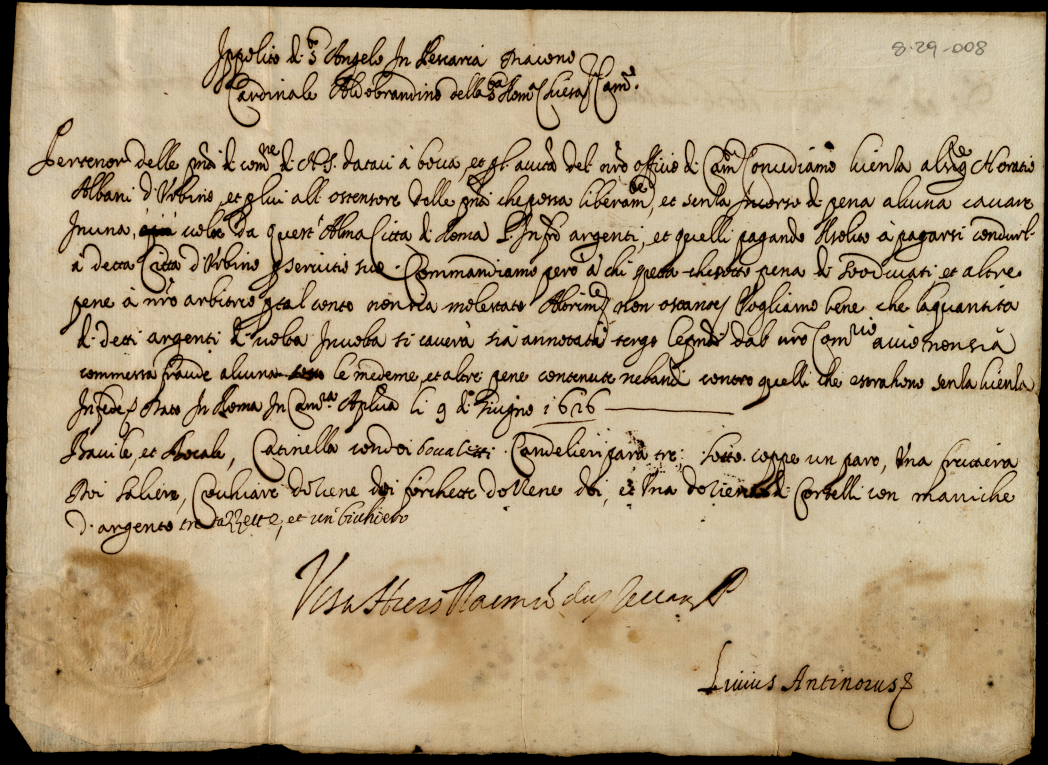 8-29-008
Ippolito di S. Angelo In Pescaria Diacono
Cardinale Aldobrandino della S.ta Rom.a Chiesa Cam.o
Per tenor delle p̃nti di com.ne di N.S. dataci à bocca, et p l'autt.a del nr̃o offitio di Cam.o Concediamo licenza al Sig.re Horatio
Albani d'Urbino, et p lui all'ostensore delle p̃nti che possa liberam.te, et senza Incorso di pena alcuna cavare
In una, volte da quest'Alma Città di Roma l'Infr̃i argenti, et quelli pagando il solito à pagarsi condurli
à detta Città d'Urbino p servitio suo. Commandiamo però à chi spetta che sotto pena di ducati et altre
pene à nr̃o arbitrio p tal conto non sia molestato Non ostante Vogliamo bene che la quantita
di detti argenti di volta In volta si caverà sia annotata tergo le p̃nti dal nr̃o Com.rio acciò non sia
commessa fraude alcuna le medeme, et altre pene contenute ne bandi contro quelli che estrahono senza licenza
In fede Dato In Roma In Cam.ra Ap̃lica li 9 di Giugno 1626
Bacile, et Bocale, Catinella con doi boccaletti Candelieri para tre: sotto coppe un paro, Una fruttiera
Doi saliere, Cochiare dozene doi forchette dozzene doi, et Una doziena di Cortelli con maniche
d'argento tre tazzette, et un bichiero
Visa Hiero
Livius Antinorus